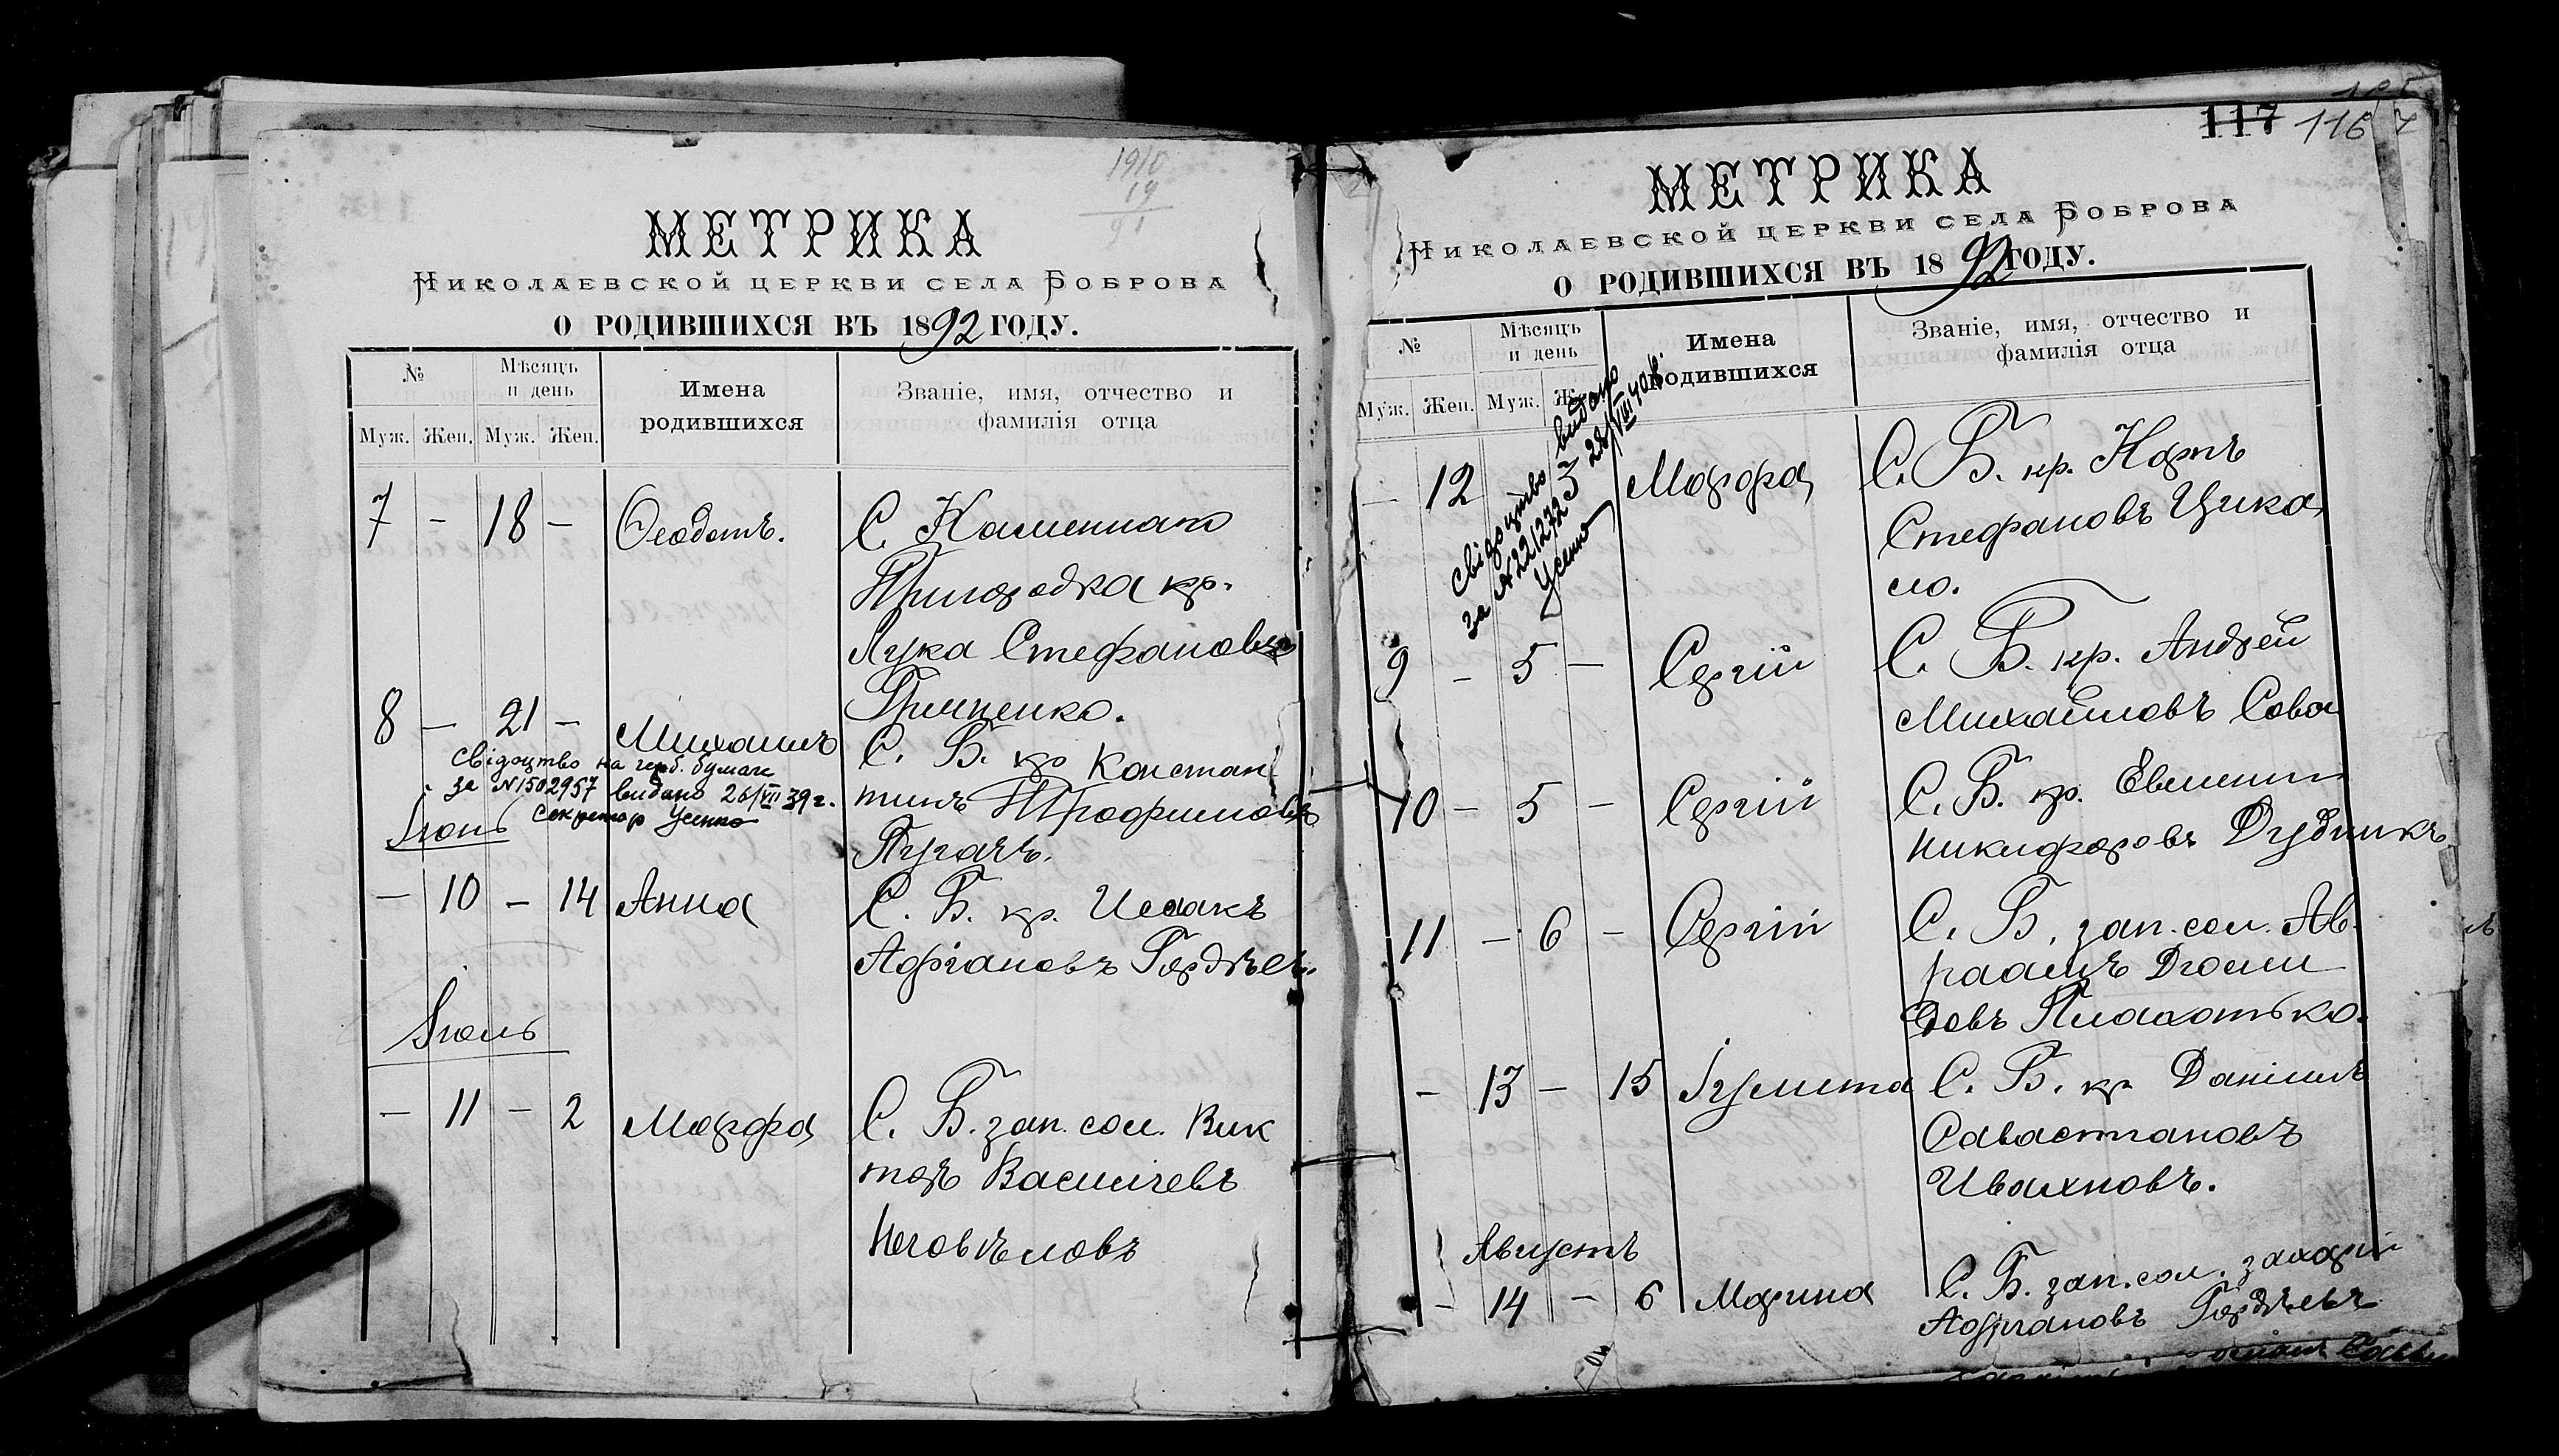 1910
19
91
МЕТРИКА
Николаевской церкви села Боброва
О РОДИВШИХСЯ ВЪ 1892 ГОДУ.
№
Мѣсяцъ и день
Имена родившихся
Званіе, имя, отчество и фамилія отца
Муж. Жен. Муж. Жен.
7 - 18 - Ѳеодотъ. С. Каменнаго
Пригородка кр.
Лука Стефановъ
Гриценко.
8 - 21 - Михаилъ С. Б. кр Констан
тинъ Трофимовъ
Пугачъ.
Свідоцтво на герб. бумаге
за N1502957 видано 26/VII 39 г.
Секретар Усенко
Іюнь
- 10 - 14 Анна С. Б. кр. Исаакъ
Афріановъ Гордѣев.
Іюль
- 11 - 2 Марфа С. Б. зап. сол. Вик
торъ Василіевъ
Неговѣловъ
117 116
МЕТРИКА
Николаевской церкви села Боброва
О РОДИВШИХСЯ ВЪ 1892 ГОДУ.
№
Мѣсяцъ и день
Имена родившихся
Званіе, имя, отчество и фамилія отца
Муж. Жен. Муж. Ж
Свідоцтво видано
за N 221272 28/VIII 40 г.
Усенко
- 12 Марфа С. Б. кр. Карпъ
Стефановъ Цика
ло.
9 - 5 - Сергій С. Б. кр. Андрей
Михайловъ Сова
10 - 5 - Сергій С. Б. кр. Евмений
Никифоровъ Дудникъ
11 - 6 - Сергій С. Б. зап. сол. Ав
раамъ Діоми
довъ Плахотько.
- 13 - 15 Іулита С. Б. кр Даніилъ
Савастіановъ
Ивахновъ.
Августъ
- 14 - 6 Марина С. Б. зап. сол. Захарій
Афріановъ Гордѣевъ